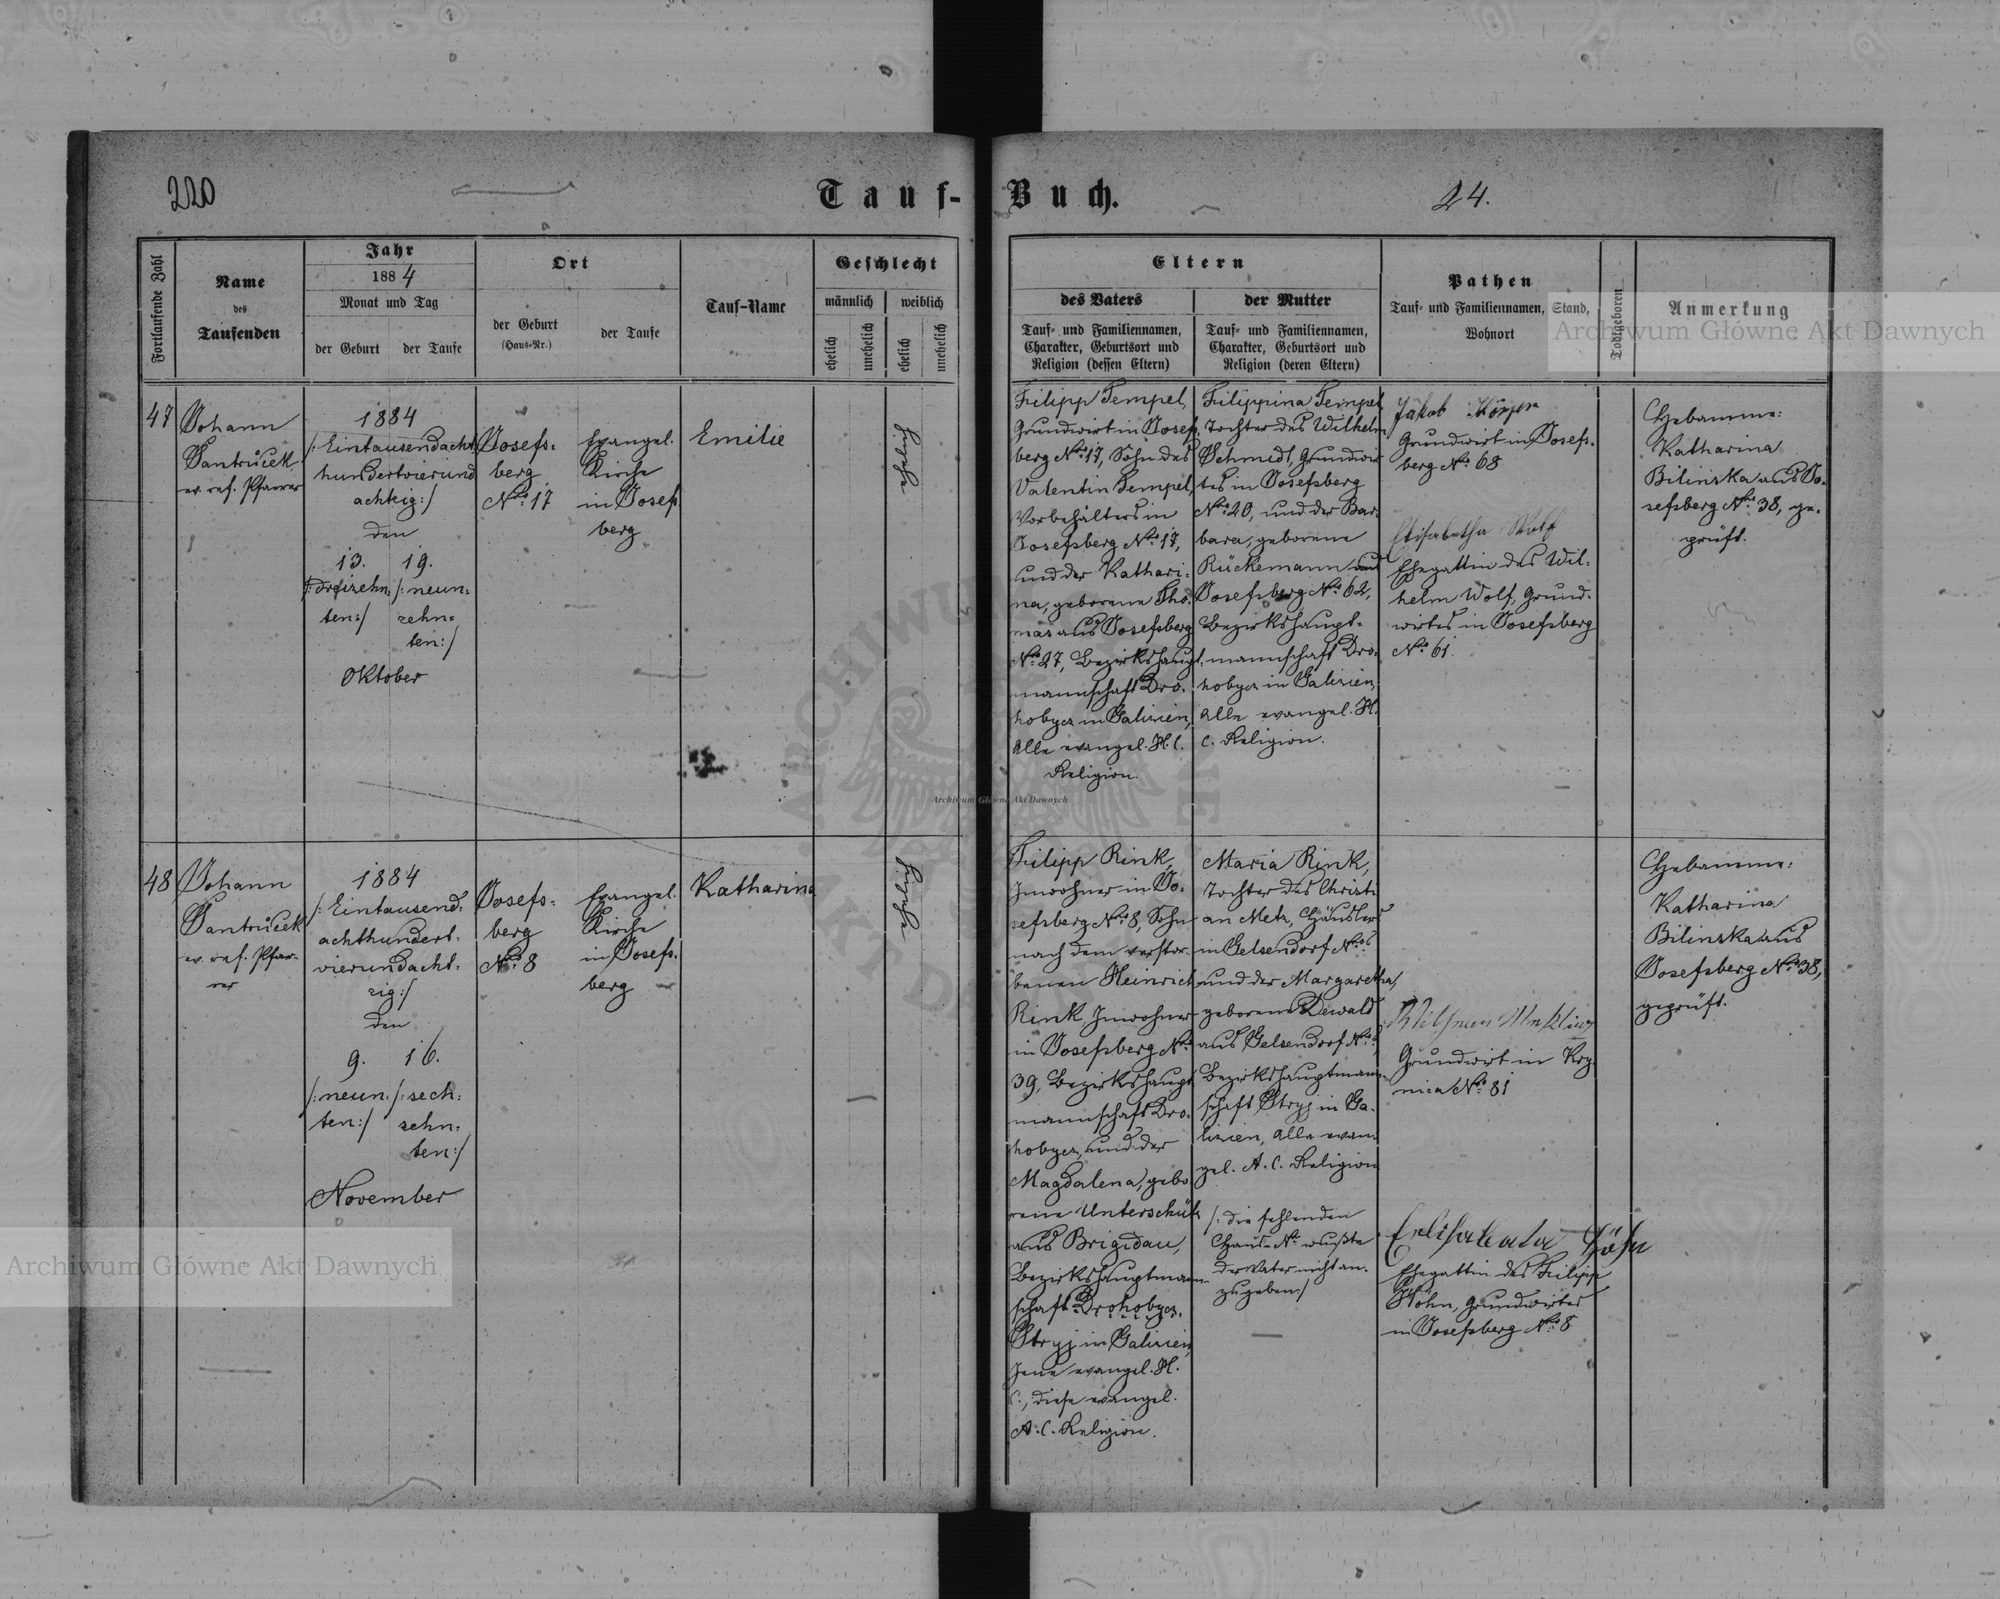 220
Tauf-Buch.
24.
Fortlaufende Zahl
Name
des
Taufenden
Jahr
1884
Monat und Tag
der Geburt
der Taufe
Ort
der Geburt
(Haus-Nr.)
der Taufe
Tauf-Name
Geschlecht
männlich
weiblich
ehelich
unehelich
ehelich
unehelich
Eltern
des Vaters
Tauf- und Familiennamen,
Charakter, Geburtsort und
Religion (dessen Eltern)
der Mutter
Tauf- und Familiennamen,
Charakter, Geburtsort und
Religion (deren Eltern)
Pathen
Tauf- und Familiennamen, Stand,
Wohnort
Todtgeboren
Anmerkung
47
Johann
Jantrůček
ev. ref. Pfarrer
1884
/: Eintausendacht
hundertvierund
achtzig :/
den
13. 19.
/: dreizehn: /: neun:
ten :/ zehn:
ten :/
Oktober
Josefs-
berg
No. 17
Evangel.
Kirche
in Josefs
berg
Emilie
eheliche
Filipp Tempel,
Grundwirt in Josefs
berg No. 17, Sohn des
Valentin Tempel,
Vorbehälters in
Josefsberg No. 17,
und der Kathari-
na, geborene Tho-
mas aus Josefsberg
No. 27, Bezirkshaupt
mannschaft Dro-
hobycz in Galizien,
Alle evangel. H. C.
Religion.
Filippina Tempel,
Tochter des Wilhelm
Schmidt, Grundwir
tes in Josefsberg
No. 20, und der Bar-
bara, geborene
Rückemann aus
Josefsberg No. 62,
Bezirkshaupt-
mannschaft Dro-
hobycz in Galizien,
Alle evangel. H.
C. Religion.
Jakob
Grundwirt in Josefs-
berg No. 68
Elisabetha Wolf
Ehegattin des Wil-
helm Wolf, Grund-
wirtes in Josefsberg
No. 61.
Hebamme:
Katharina
Bilinska aus Jo-
sefsberg No. 38, ge-
prüft.
48
Johann
Jantrůček
ev. ref. Pfar-
rer
1884
/: Eintausend-
achthundert-
vierundacht-
zig :/
den
9. 16.
/: neun: /: sech:
ten :/ zehn:
ten :/
November
Josefs-
berg
No. 8
Evangel.
Kirche
in Josefs-
berg
Katharina
eheliche
Filipp Rink,
Inwohner in Jo-
sefsberg No. 8, Sohn
nach dem verstor-
benen Heinrich
Rink, Inwohner
in Josefsberg No.
39, Bezirkshaupt
mannschaft Dro-
hobycz, und der
Magdalena, gebo
rene Unterschütz
aus Brigidau,
Bezirkshauptmann-
schaft Drohobycz.
Stryj in Galizien,
Jene evangel. H.
C., diese evangel.
A. C. Religion.
Maria Rink,
Tochter des Christi
an Metz, Häuslers
in Gelsendorf No.
und der Margaretha,
geborene Dewald
aus Gelsendorf No.
Bezirkshauptmann-
schaft Stryj in Ga-
lizien, Alle evan-
gel. A. C. Religion
/: die fehlenden
Haus-No. wußte
der Vater nicht an-
zugeben :/
Grundwirt in Kry
nica No. 81
Höhn
Ehegattin des Filipp
Höhn, Grundwirtes
in Josefsberg No. 8
Hebamme:
Katharina
Bilinska aus
Josefsberg No. 38,
geprüft.
Archiwum Główne Akt Dawnych
Archiwum Główne Akt Dawnych
Archiwum Główne Akt Dawnych